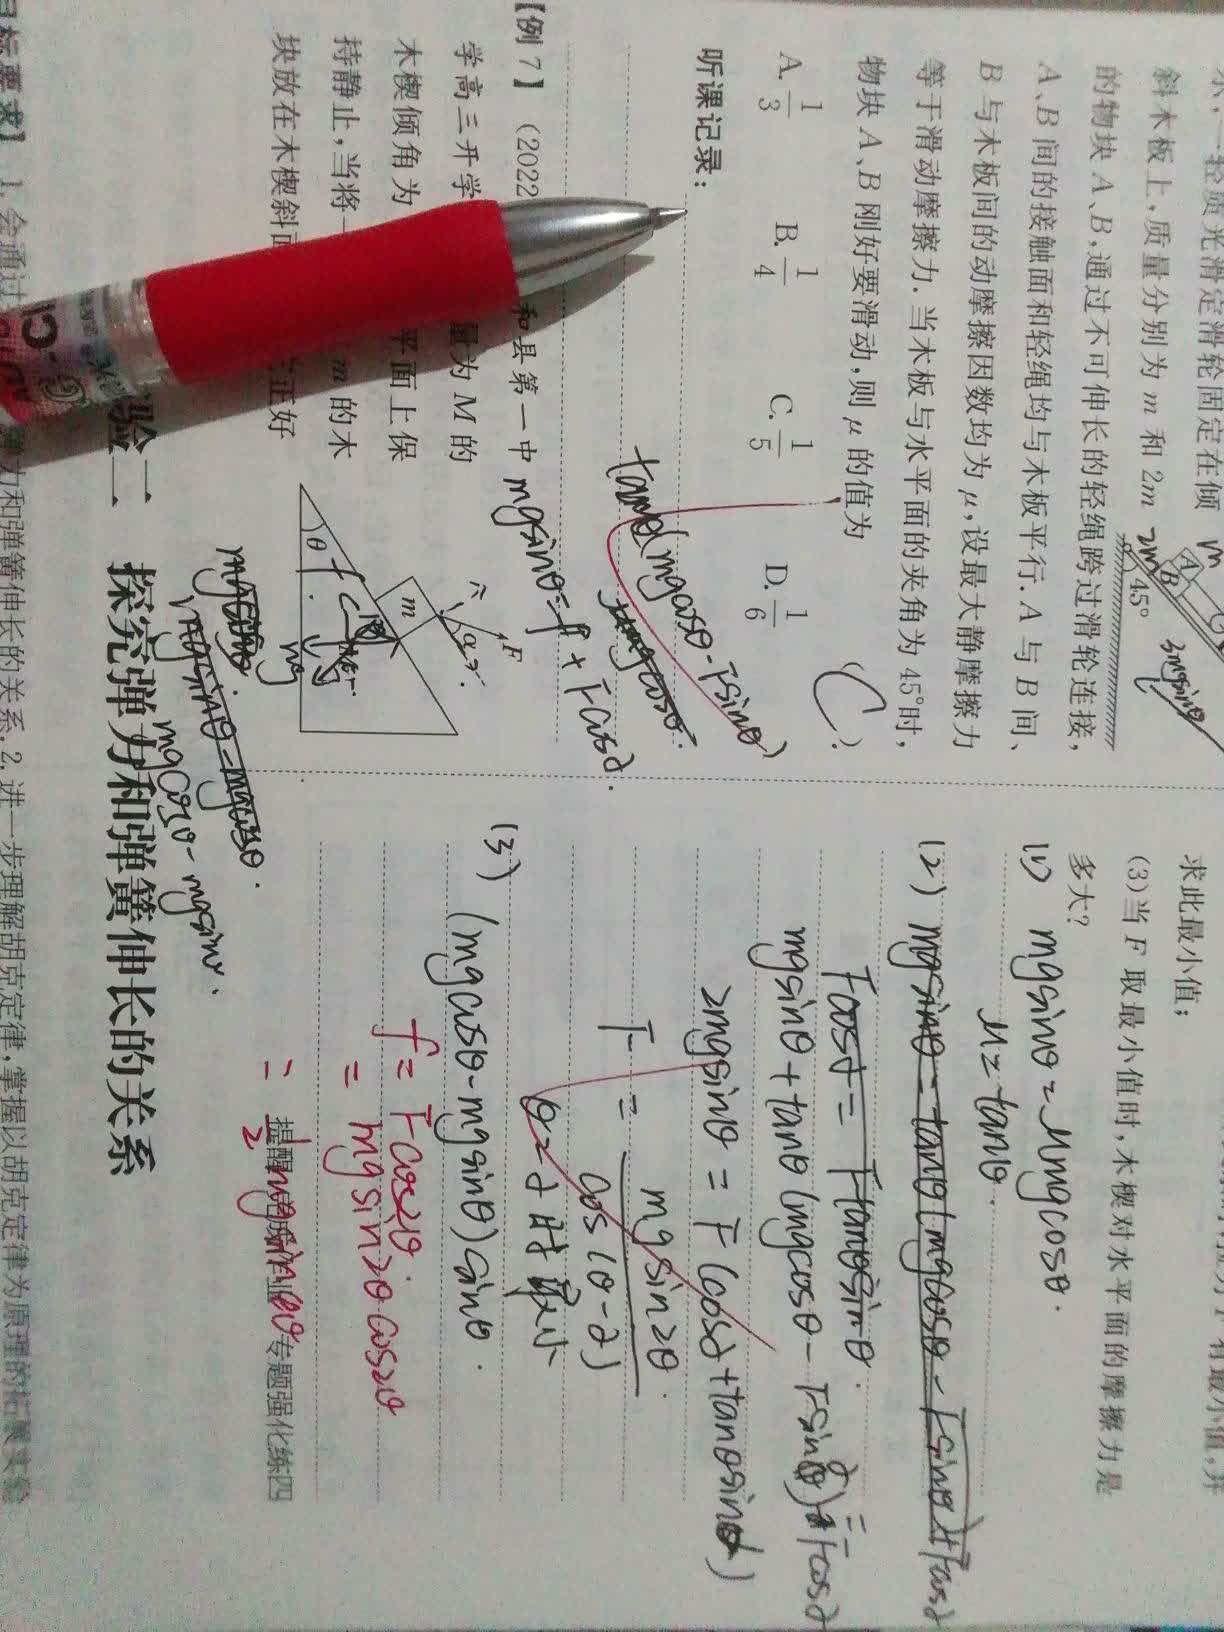 斜木板上,质量分别为 m 和 2m
的物块 A、B,通过不可伸长的轻绳跨过滑轮连接,
A、B 间的接触面和轻绳均与木板平行. A 与 B 间、
B 与木板间的动摩擦因数均为 μ,设最大静摩擦力
等于滑动摩擦力. 当木板与水平面的夹角为 45°时,
物块 A、B 刚好要滑动,则 μ 的值为 ( C )
A. 1/3 B. 1/4 C. 1/5 D. 1/6
m
A
B
2m
45°
3mgsinθ
听课记录:
tanθ(mgcosθ-Fsinθ)
【例 7】 (2022
和县第一中
学高三开学
量为 M 的
木楔倾角为
平面上保
持静止,当将一
m 的木
块放在木楔斜面
正好
mgsinθ=f+Fcosα.
F
α
m
f
θ
mg
mgcosθ-mgsinα.
求此最小值;
(3)当 F 取最小值时,木楔对水平面的摩擦力是
多大?
(1) mgsinθ=μmgcosθ.
μ=tanθ.
(2) mgsinθ-tanθ(mgcosθ-Fsinθ)+Fcosα
Fcosα=Ftanθsinθ.
mgsinθ+tanθ(mgcosθ-Fsinα)=Fcosα
2mgsinθ=F(cosα+tanθsinα)
F=mgsin2θ/cos(θ-α).
θ=α时最小
(3) (mgcosθ-mgsinθ)sinθ.
f=Fcos2θ.
=mgsin2θcos2θ
专题强化练四
验二 探究弹力和弹簧伸长的关系
目标要求】 1. 会通过
力和弹簧伸长的关系. 2. 进一步理解胡克定律,掌握以胡克定律为原理的拓展实验